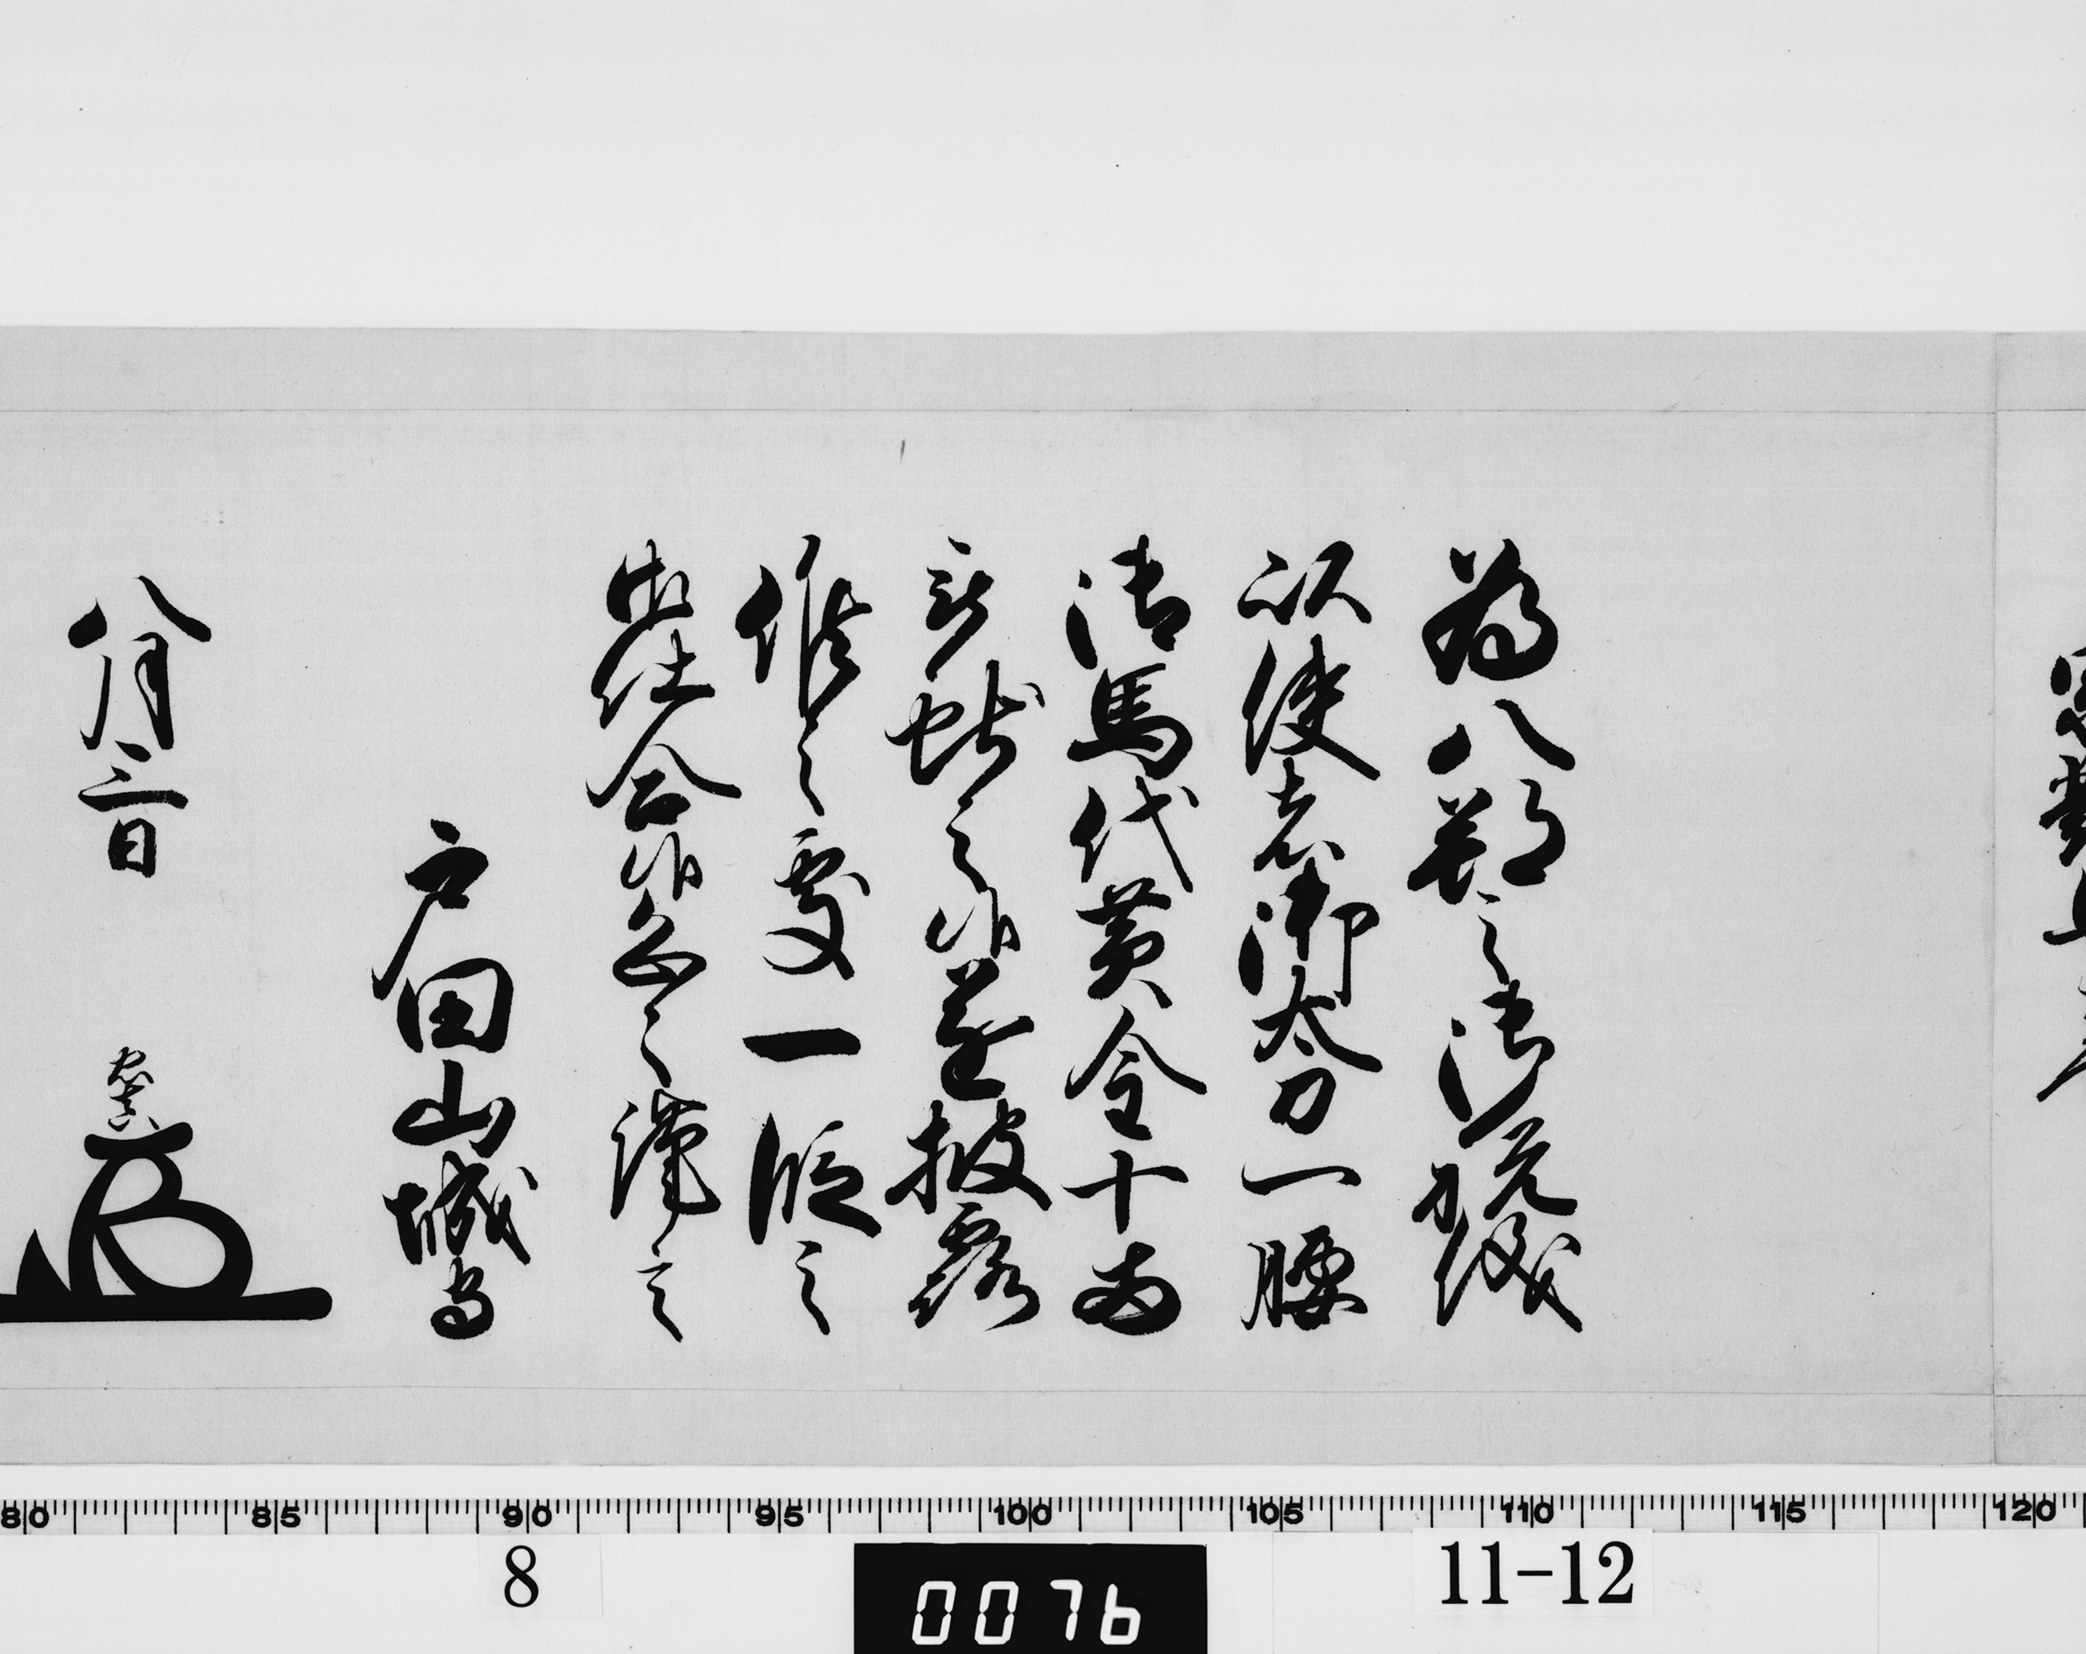 為八朔之御祝儀
以使者御太刀一腰
御馬代黄金十両
被献之候遂披露
候之處一段之
御仕合候恐々謹言
戸田山城守
八月三日 忠真
80 85 90 95 100 105 110 115 120
8 0076 11-12